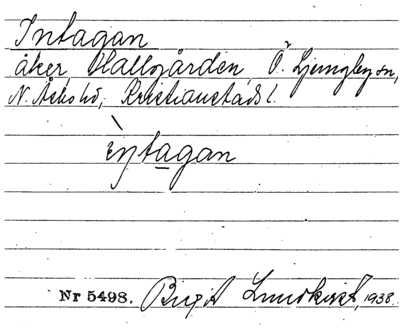 Intagan
åker, Hallgården, Ö. Ljungby sn,
N. Åsbo hd, Kristianstads l.
ìntagan
Nr 5498. Birgit Lundkvist, 1938.